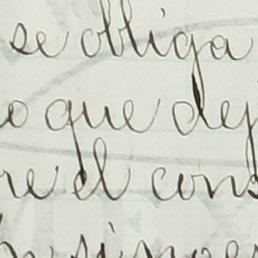 se obliga
o que dej
re el cons